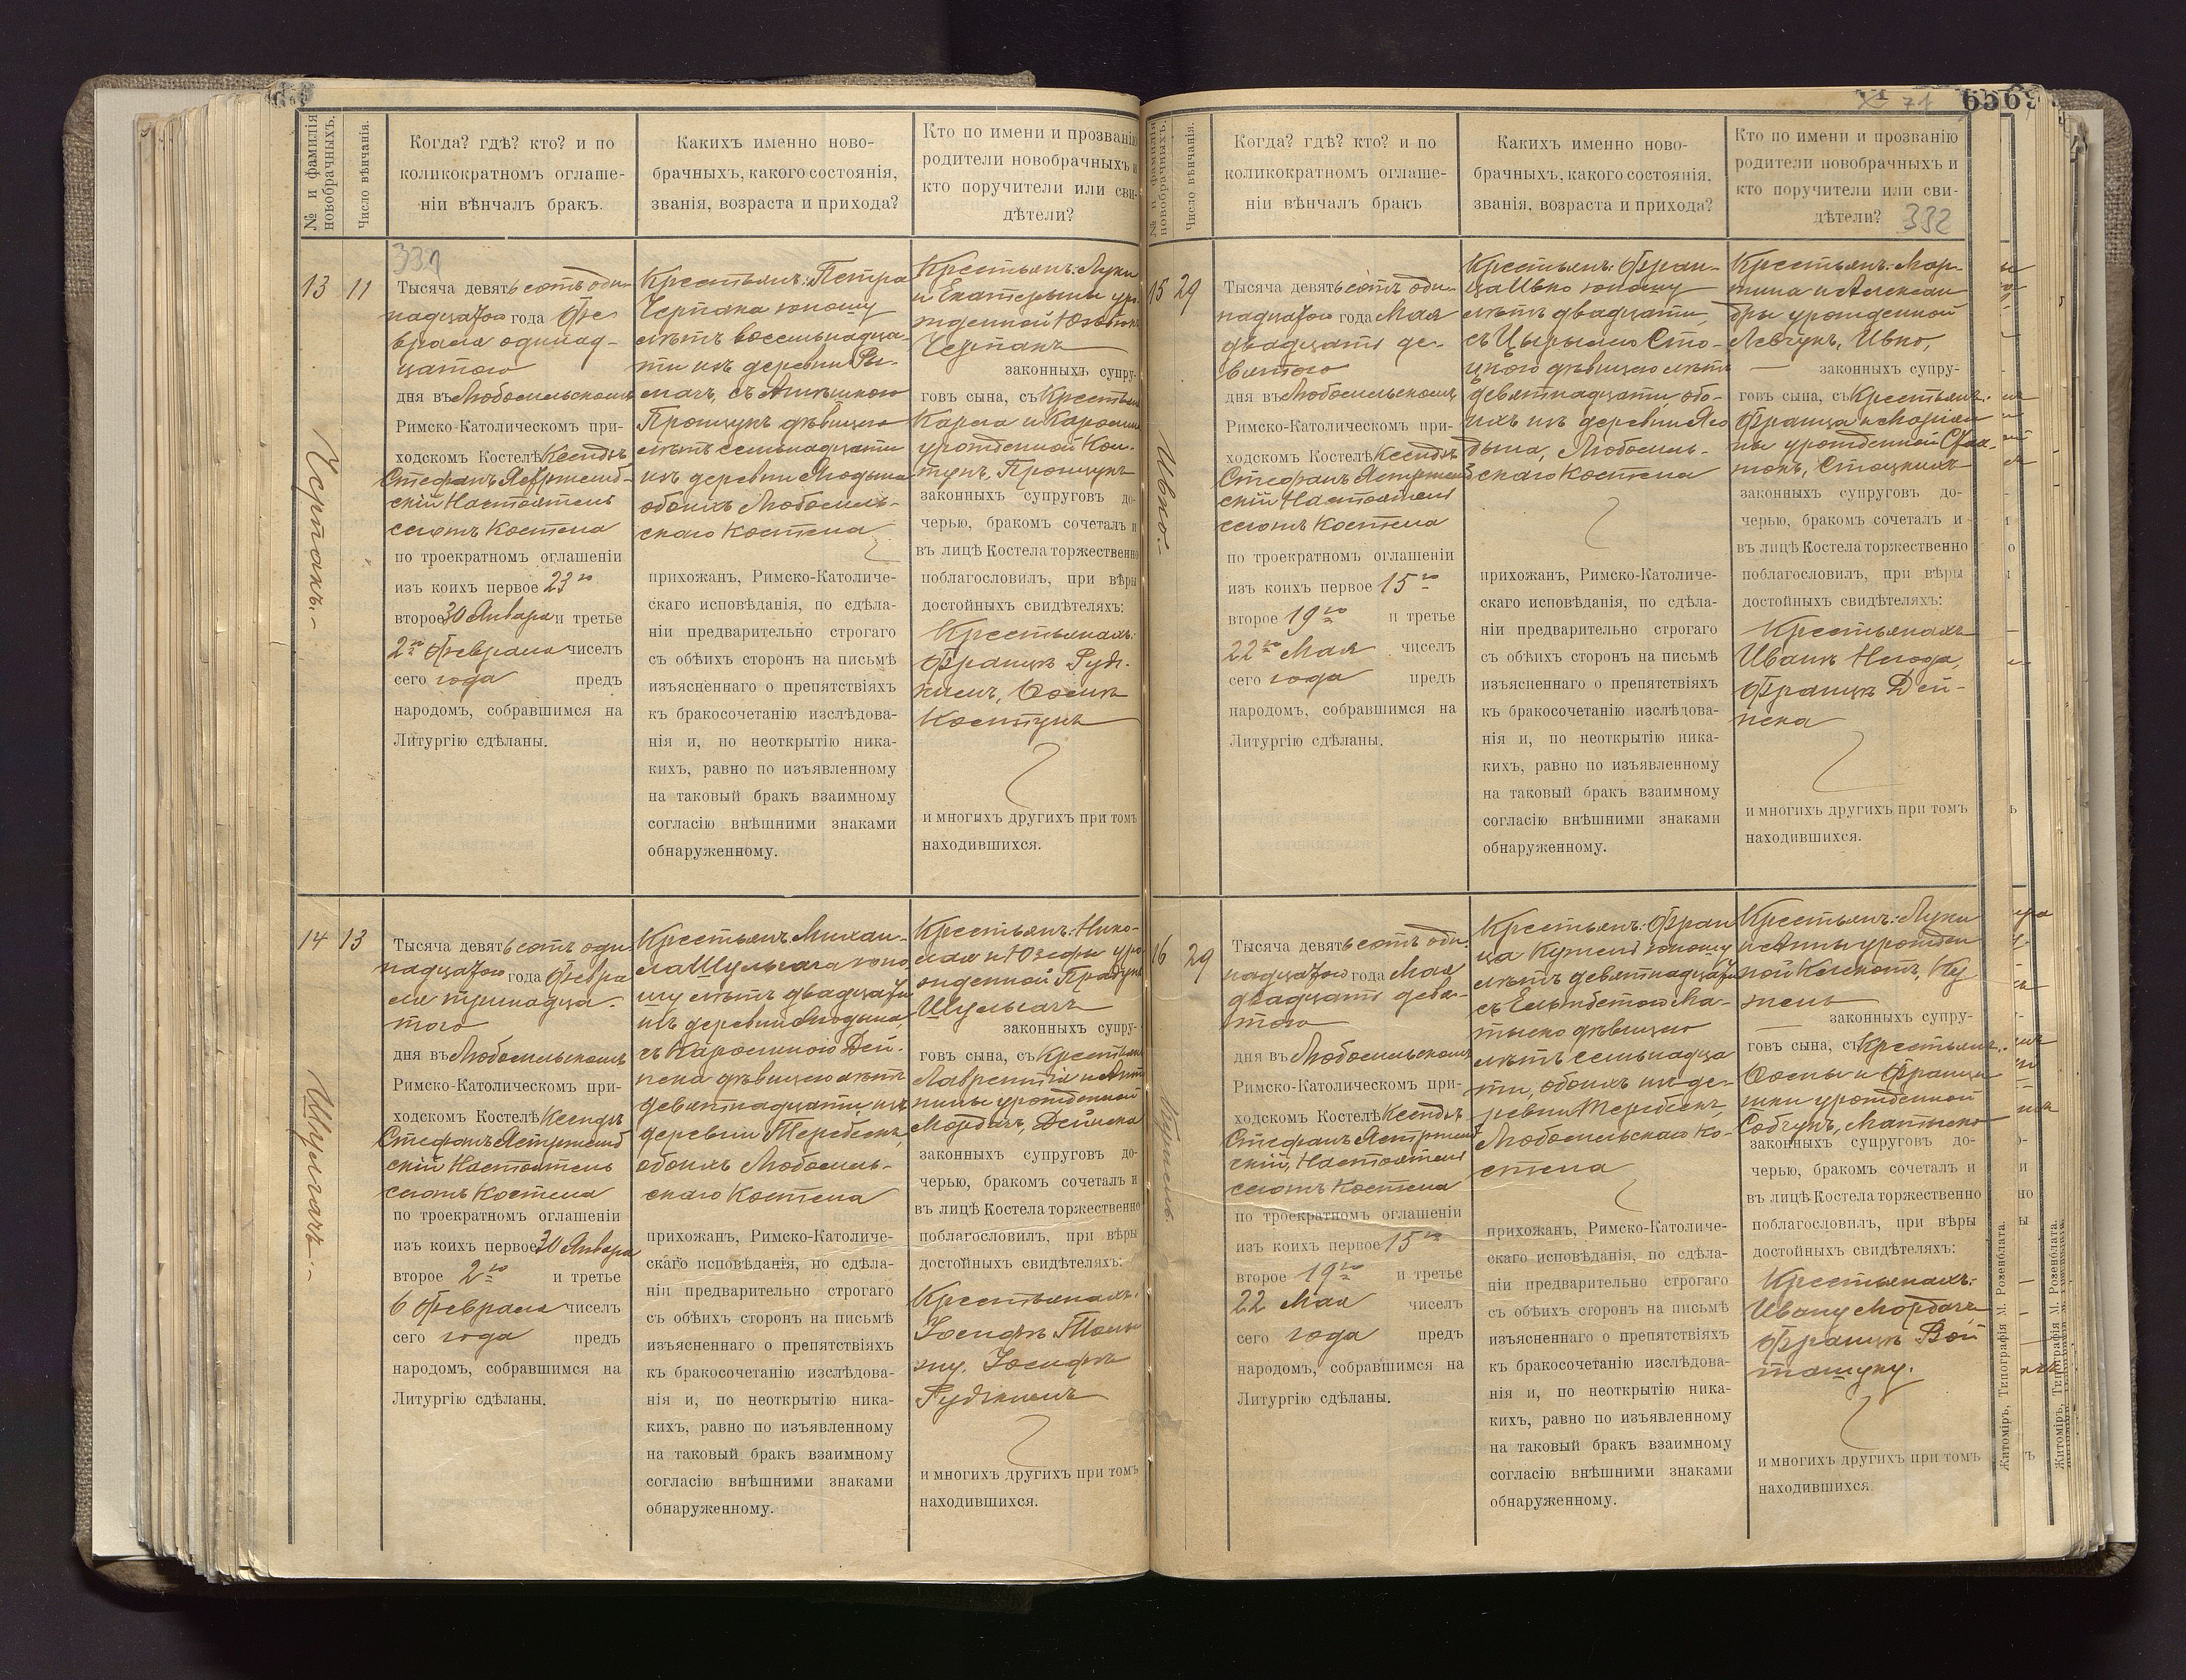 6569
№ и фамилія новобрачныхъ.
Число вѣнчанія.
Когда? гдѣ? кто? и по
коликократномъ оглаше-
ніи вѣнчалъ бракъ.
Каких‌ъ именно ново-
брачныхъ, какого состоянія,
званія, возраста и прихода?
Кто по имени и прозванію
родители новобрачныхъ и
кто поручители или сви-
дѣтели?
13
11
Черпакъ.-
Тысяча девятьсотъ оди-
надцатого года Фе
враля одинад-
цатого
дня въ Любомльскомъ
Римско-Католическомъ при-
ходскомъ Костелѣ Ксендзъ
Стефанъ Ястржемб-
скій Настоятель
сегожъ Костела
по троекратномъ оглашеніи
изъ коихъ первое 23го
второе 30 Января и третье
2го Февраля чиселъ
сего года предъ
народомъ, собравшимся на
Литургію сдѣланы.
Крестьянъ: Петра
Черпака юношу
лѣтъ восемьнадца-
ти изъ деревни Ры-
мачъ, съ
дѣвицею
лѣтъ семьнадцати
изъ деревни Ягодына
обоихъ Любомль-
скаго Костела
прихожанъ, Римско-Католиче-
скаго исповѣданія, по сдѣла-
ніи предварительно строгаго
съ обѣихъ сторонъ на письмѣ
изъясненнаго о препятствіяхъ
къ бракосочетанію изслѣдова-
нія и, по неоткрытію ника-
кихъ, равно по изъявленному
на таковый бракъ взаимному
согласію внѣшними знаками
обнаруженному.
Крестьянъ: Луки
и Екатерины уро-
жденной
Черпакъ
законныхъ супру-
говъ сына, съ Крестьянъ
Карла и Каролины
урожденной Ков-
тунъ,
законныхъ супруговъ до-
черью, бракомъ сочеталъ и
въ лицѣ Костела торжественно
поблагословилъ, при вѣры
достойныхъ свидѣтеляхъ:
Крестьянахъ:
Францѣ Рудь-
Осипѣ
и многихъ другихъ при томъ
находившихся.
14
13
Шульгачъ.-
Тысяча девятьсотъ оди
надцатого года Февра
ля тринадца-
того
дня въ Любомльскомъ
Римско-Католическомъ при-
ходскомъ Костелѣ Ксендзъ
Стефанъ Ястржемб
скій Настоятель
сегожъ Костела
по троекратномъ оглашеніи
изъ коихъ первое 30 Января
второе 2го и третье
6 Февраля чиселъ
сего года предъ
народомъ, собравшимся на
Литургію сдѣланы.
Крестьянъ Михаи-
ла Шульгача юно
шу лѣтъ двадцати
изъ деревни Ягодына,
съ Каролиною Дей-
нека дѣвицею лѣтъ
девятнадцати изъ
деревни Теребейки,
обоихъ Любомль-
скаго Костела
прихожанъ, Римско-Католиче-
скаго исповѣданія, по сдѣла-
ніи предварительно строгаго
съ обѣихъ сторонъ на письмѣ
изъясненнаго о препятствіяхъ
къ бракосочетанію изслѣдова-
нія и, по неоткрытію ника-
кихъ, равно по изъявленному
на таковый бракъ взаимному
согласію внѣшними знаками
обнаруженному.
Крестьянъ: Нико-
лая и Юзефы уро
жденной
Шульгачъ
законныхъ супру-
говъ сына, съ Крестьянъ
Лаврентія и Анто
нины урожденной
Мордачъ, Дейнека
законныхъ супруговъ до-
черью, бракомъ сочеталъ и
въ лицѣ Костела торжественно
поблагословилъ, при вѣры
достойныхъ свидѣтеляхъ:
Крестьянахъ:
Іосифѣ
Іосифѣ
и многихъ другихъ при томъ
находившихся.
№ и фамилія новобрачныхъ.
Число вѣнчанія.
Когда? гдѣ? кто? и по
коликократномъ оглаше-
ніи вѣнчалъ бракъ
Какихъ именно ново-
брачныхъ, какого состоянія,
званія, возраста и прихода?
Кто по имени и прозванію
родители новобрачныхъ и
кто поручители или сви-
дѣтели?
332
15
29
Ивко.-
Тысяча девятьсотъ оди-
надцатого года Мая
двадцать де-
вятого
дня въ Любомльскомъ
Римско-Католическомъ при-
ходскомъ Костелѣ Ксендзъ
Стефанъ Ястржемб
скій Настоятель
сегожъ Костела
по троекратномъ оглашеніи
изъ коихъ первое 15го
второе 19го и третье
22го Мая чиселъ
сего года предъ
народомъ, собравшимся на
Литургію сдѣланы.
Крестьянъ: Фран-
ца Ивко юношу
лѣтъ двадцати,
съ Сто-
цкою дѣвицею лѣтъ
девятнадцати, обо-
ихъ изъ деревни Яго
дына, Любомль-
скаго Костела
прихожанъ, Римско-Католиче-
скаго исповѣданія, по сдѣла-
ніи предварительно строгаго
съ обѣихъ сторонъ на письмѣ
изъясненнаго о препятствіяхъ
къ бракосочетанію изслѣдова-
нія и, по неоткрытію ника-
кихъ, равно по изъявленному
на таковый бракъ взаимному
согласію внѣшними знаками
обнаруженному.
Крестьянъ: Мар-
тина и Алексан
дры урожденной
Левчукъ, Ивко,
законныхъ супру-
говъ сына, съ Крестьянъ:
Франца и Маріан
ны урожденной
Стоцкихъ
законныхъ супруговъ до-
черью, бракомъ сочеталъ и
въ лицѣ Костела торжественно
поблагословилъ, при вѣры
достойныхъ свидѣтеляхъ:
Крестьянахъ
Иванѣ
Францѣ Дей-
нека
и многихъ другихъ при томъ
находившихся.
16
29
Кужель.
Тысяча девятьсотъ оди-
надцатого года Мая
двадцать девя-
того
дня въ Любомльскомъ
Римско-Католическомъ при-
ходскомъ Костелѣ Ксендзъ
Стефанъ Ястржемб
скій, Настоятель
сегожъ Костела
по троекратномъ оглашеніи
изъ коихъ первое 15го
второе 19го и третье
22 Мая чиселъ
сего года предъ
народомъ, собравшимся на
Литургію сдѣланы.
Крестьянъ: Фран
ца Кужель юношу
лѣтъ девятнадцати
съ Елизбетою Ма-
тыско дѣвицею
лѣтъ семьнадца
ти, обоихъ изъ де-
ревни Теребейки,
Любомльскаго Ко-
стела
прихожанъ, Римско-Католиче-
скаго исповѣданія, по сдѣла-
ніи предварительно строгаго
съ обѣихъ сторонъ на письмѣ
изъясненнаго о препятствіяхъ
къ бракосочетанію изслѣдова-
нія и, по неоткрытію ника-
кихъ, равно по изъявленному
на таковый бракъ взаимному
согласію внѣшними знаками
обнаруженному.
Крестьянъ: Луки
и Анны урожден
ной Ку
жель
законныхъ супру-
говъ сына, съ Крестьянъ:
Осипы и Франци
шки урожденной
Матыско
законныхъ супруговъ до-
черью, бракомъ сочеталъ и
въ лицѣ Костела торжественно
поблагословилъ, при вѣры
достойныхъ свидѣтеляхъ:
Крестьянахъ:
Ивану Мордачъ,
Францѣ Вой
ташуку.
и многихъ другихъ при томъ
находившихся.
Житоміръ, Типографія М. Розенблата.
Житоміръ, Типографія М. Розенблата.